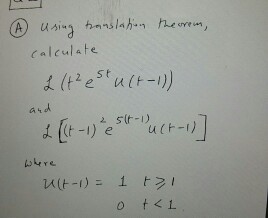 (A) Using translation theorem,
calculate
ℒ (t² e^{5t} u(t-1))
and
ℒ [(t-1)² e^{5(t-1)} u(t-1)]
where
u(t-1) = 1 t ≥ 1
0 t < 1.